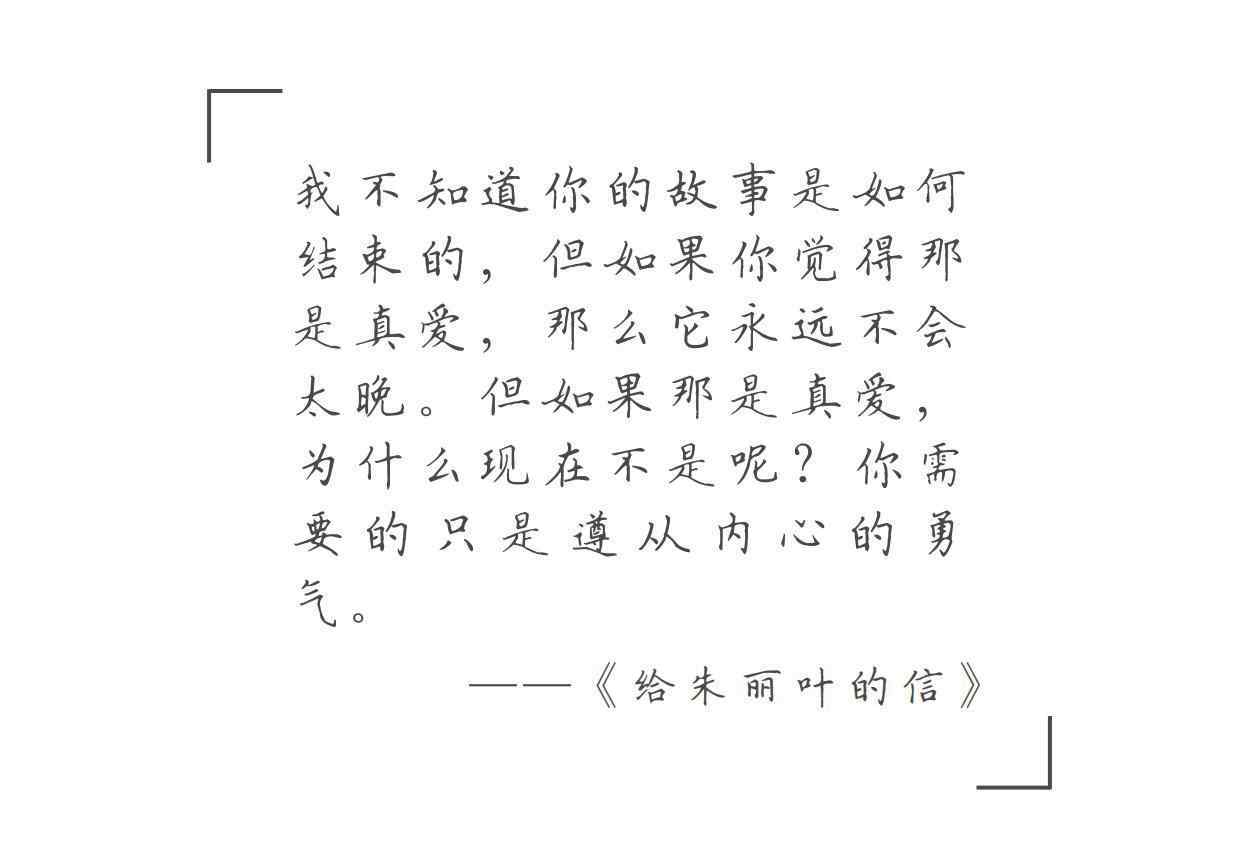 我不知道你的故事是如何
结束的，但如果你觉得那
是真爱，那么它永远不会
太晚。但如果那是真爱，
为什么现在不是呢？你需
要的只是遵从内心的勇
气。
——《给朱丽叶的信》